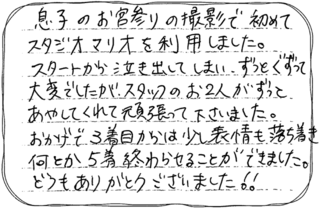 息子のお宮参りの撮影で初めて
スタジオマリオを利用しました。
スタートから泣き出してしまい、ずっとぐずって
大変でしたが、スタッフのお2人がずっと
あやしてくれて頑張って下さいました。
おかげで3着目からは少し表情も落ち着き
何とか5着終わらせることができました。
どうもありがとうございました!!